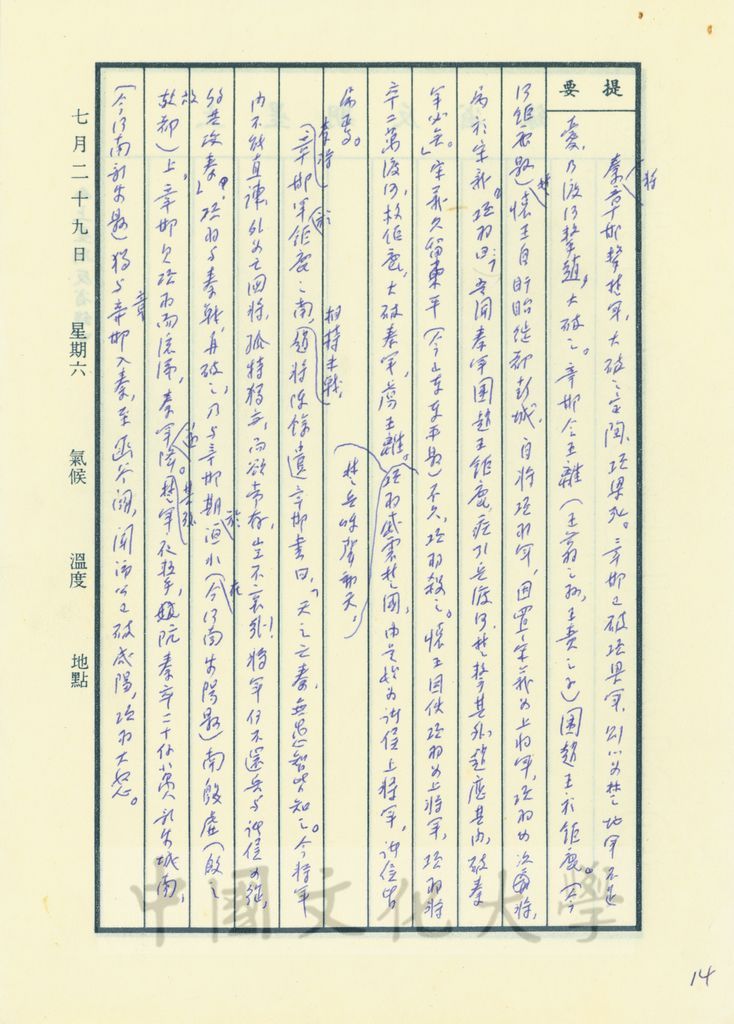 提要
秦將章邯擊楚軍，大破之定陶，項梁死。章邯已破項梁軍，則以為楚地軍不足
憂，乃渡河擊趙，大破之。章邯令王離（王翦之孫，王賁之子）圍趙王於鉅鹿。（今
河鉅鹿縣）楚懷王自盱眙徙都彭城，自將項羽軍，因置宋義為上將軍，項羽為次將，
屬於宋義。項羽曰：「今聞秦軍圍趙王鉅鹿，疾引兵渡河，楚擊其外，趙應其內，破秦
軍必矣。」宋義久留東平（今山東東平縣）不久，項羽殺之。懷王因使項羽為上將軍，項羽將
卒二萬渡河，救鉅鹿，大破秦軍，虜王離。項羽威震楚國，由是始為諸侯上將軍，諸侯皆
屬焉。
楚兵呼聲動天，
章邯軍鉅鹿之南，趙將陳餘遺章邯書曰，「天之亡秦，無愚智皆知之。今將軍
秦將
於
相持未戰，
內不能直諫，外為亡國將，孤特獨立，而欲常存，豈不哀哉！將軍何不還兵與諸侯為從，
約共攻秦」。項羽與秦戰，再破之，乃與章邯期於洹水（今在河南安陽縣）南殷虛（殷之
故都）上。章邯見項羽而流涕，秦軍降楚。軍夜擊，阬秦卒二十餘萬人於新安城南，
（今河南新安縣）獨與章邯入秦，至函谷關，聞沛公已破咸陽，項羽大怒。
七月二十九日 星期六 氣候 溫度 地點
中國文化大學
14